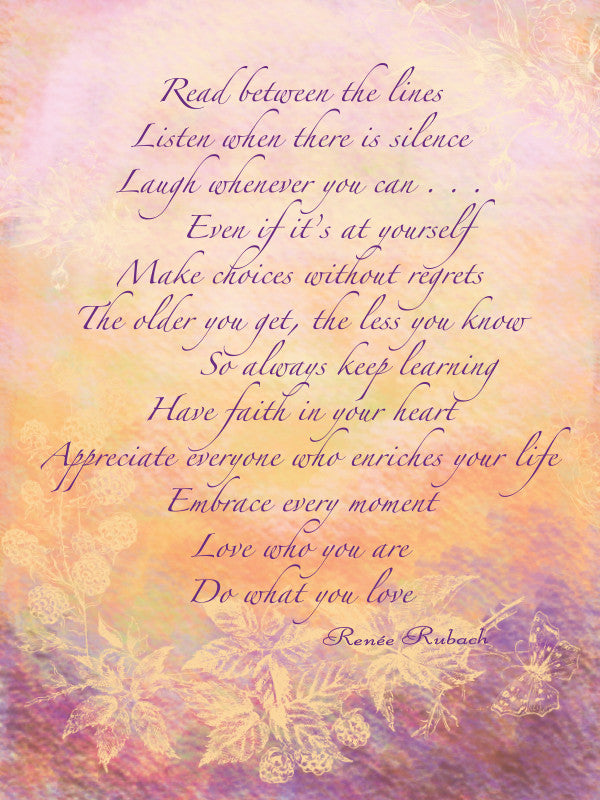 Read between the lines
Listen when there is silence
Laugh whenever you can . . .
Even if it's at yourself
Make choices without regrets
The older you get, the less you know
So always keep learning
Have faith in your heart
Appreciate everyone who enriches your life
Embrace every moment
Love who you are
Do what you love
Renée Rubach